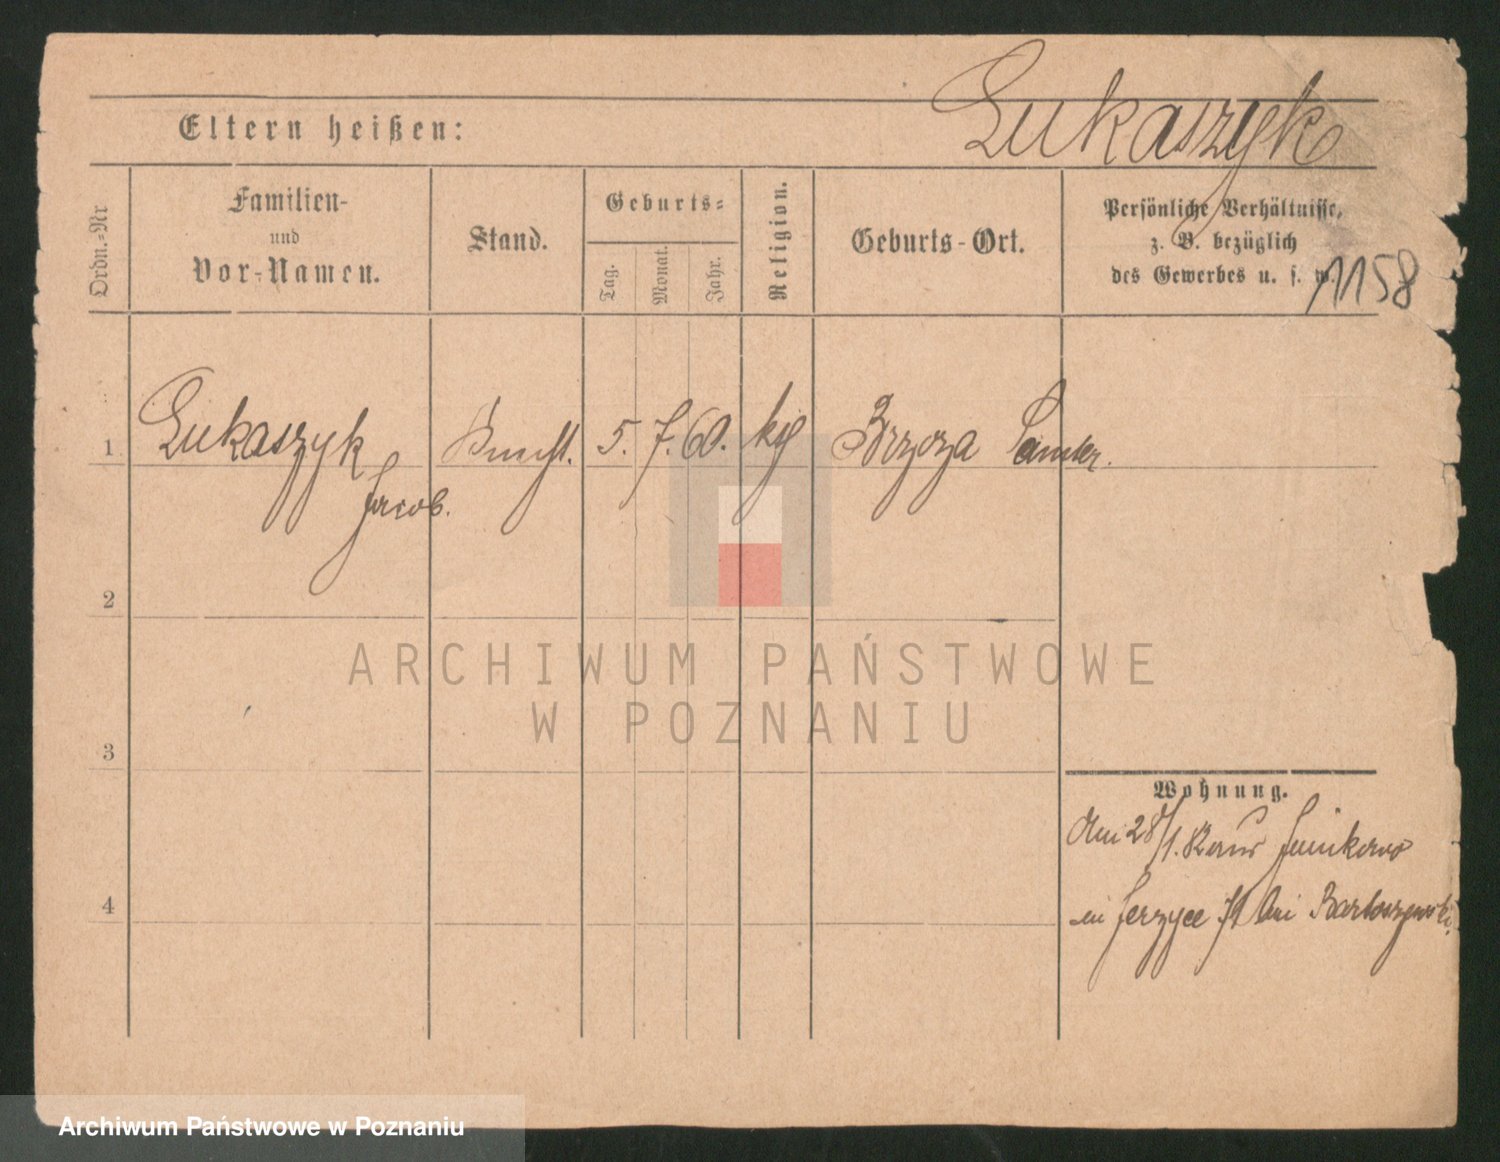 Lukaszyk
Eltern heißen:
Ordn.-Nr
Familien-
und
Vor-Namen.
Stand.
Geburts-
Tag.
Monat.
Jahr.
Religion.
Geburts-Ort.
Persönliche Verhältnisse,
z. B. bezüglich
des Gewerbes u. s. w.
1158
1
Lukaszyk
Jacob.
Knecht.
5. 7. 60.
Brzoza Samter.
2
3
4
Wohnung.
28/1.
Junikowo
in Jerzyce 71 bei Bartoszewski.
ARCHIWUM PAŃSTWOWE
W POZNANIU
Archiwum Państwowe w Poznaniu